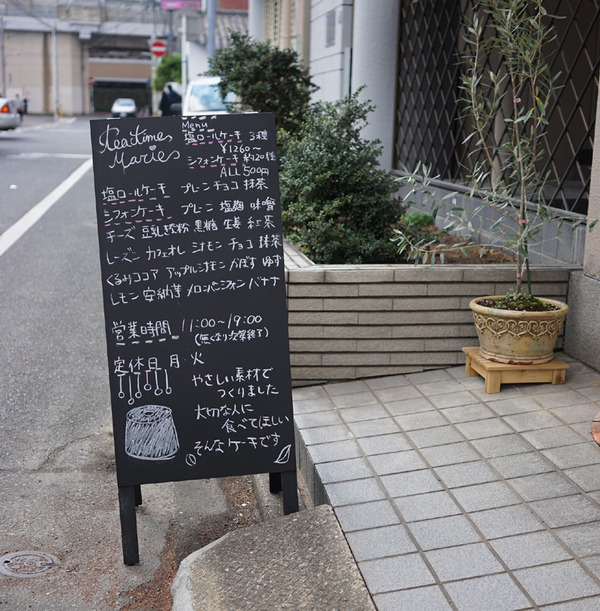 teatime
Marie
Menu
塩ロールケーキ 3種
¥1260～
シフォンケーキ 約20種
ALL500円
塩ロールケーキ プレーン チョコ 抹茶
シフォンケーキ プレーン 塩麹 味噌
チーズ 豆乳 黒糖 生姜 紅茶
レーズン カフェオレ シナモン チョコ 抹茶
くるみココア アップルシナモン かぼす ゆず
レモン 安納芋 メロンパンシフォン バナナ
営業時間 11:00～19:00
(無くなり次第終了)
定休日 月・火
やさしい素材で
つくりました
大切な人に
食べてほしい
そんなケーキです